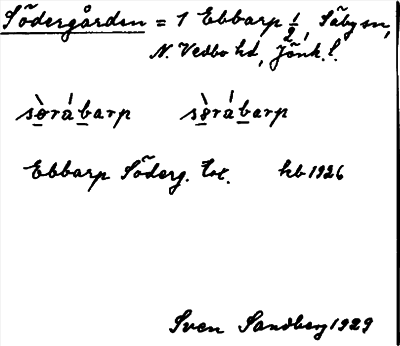 Södergården = 1 Ebbarp 1/2, Säby sn,
N. Vedbo hd, Jönk. l.
sø̀rábarp sø̀rábarp
Ebbarp Söderg. tot. hb 1926
Sven Sandberg 1929